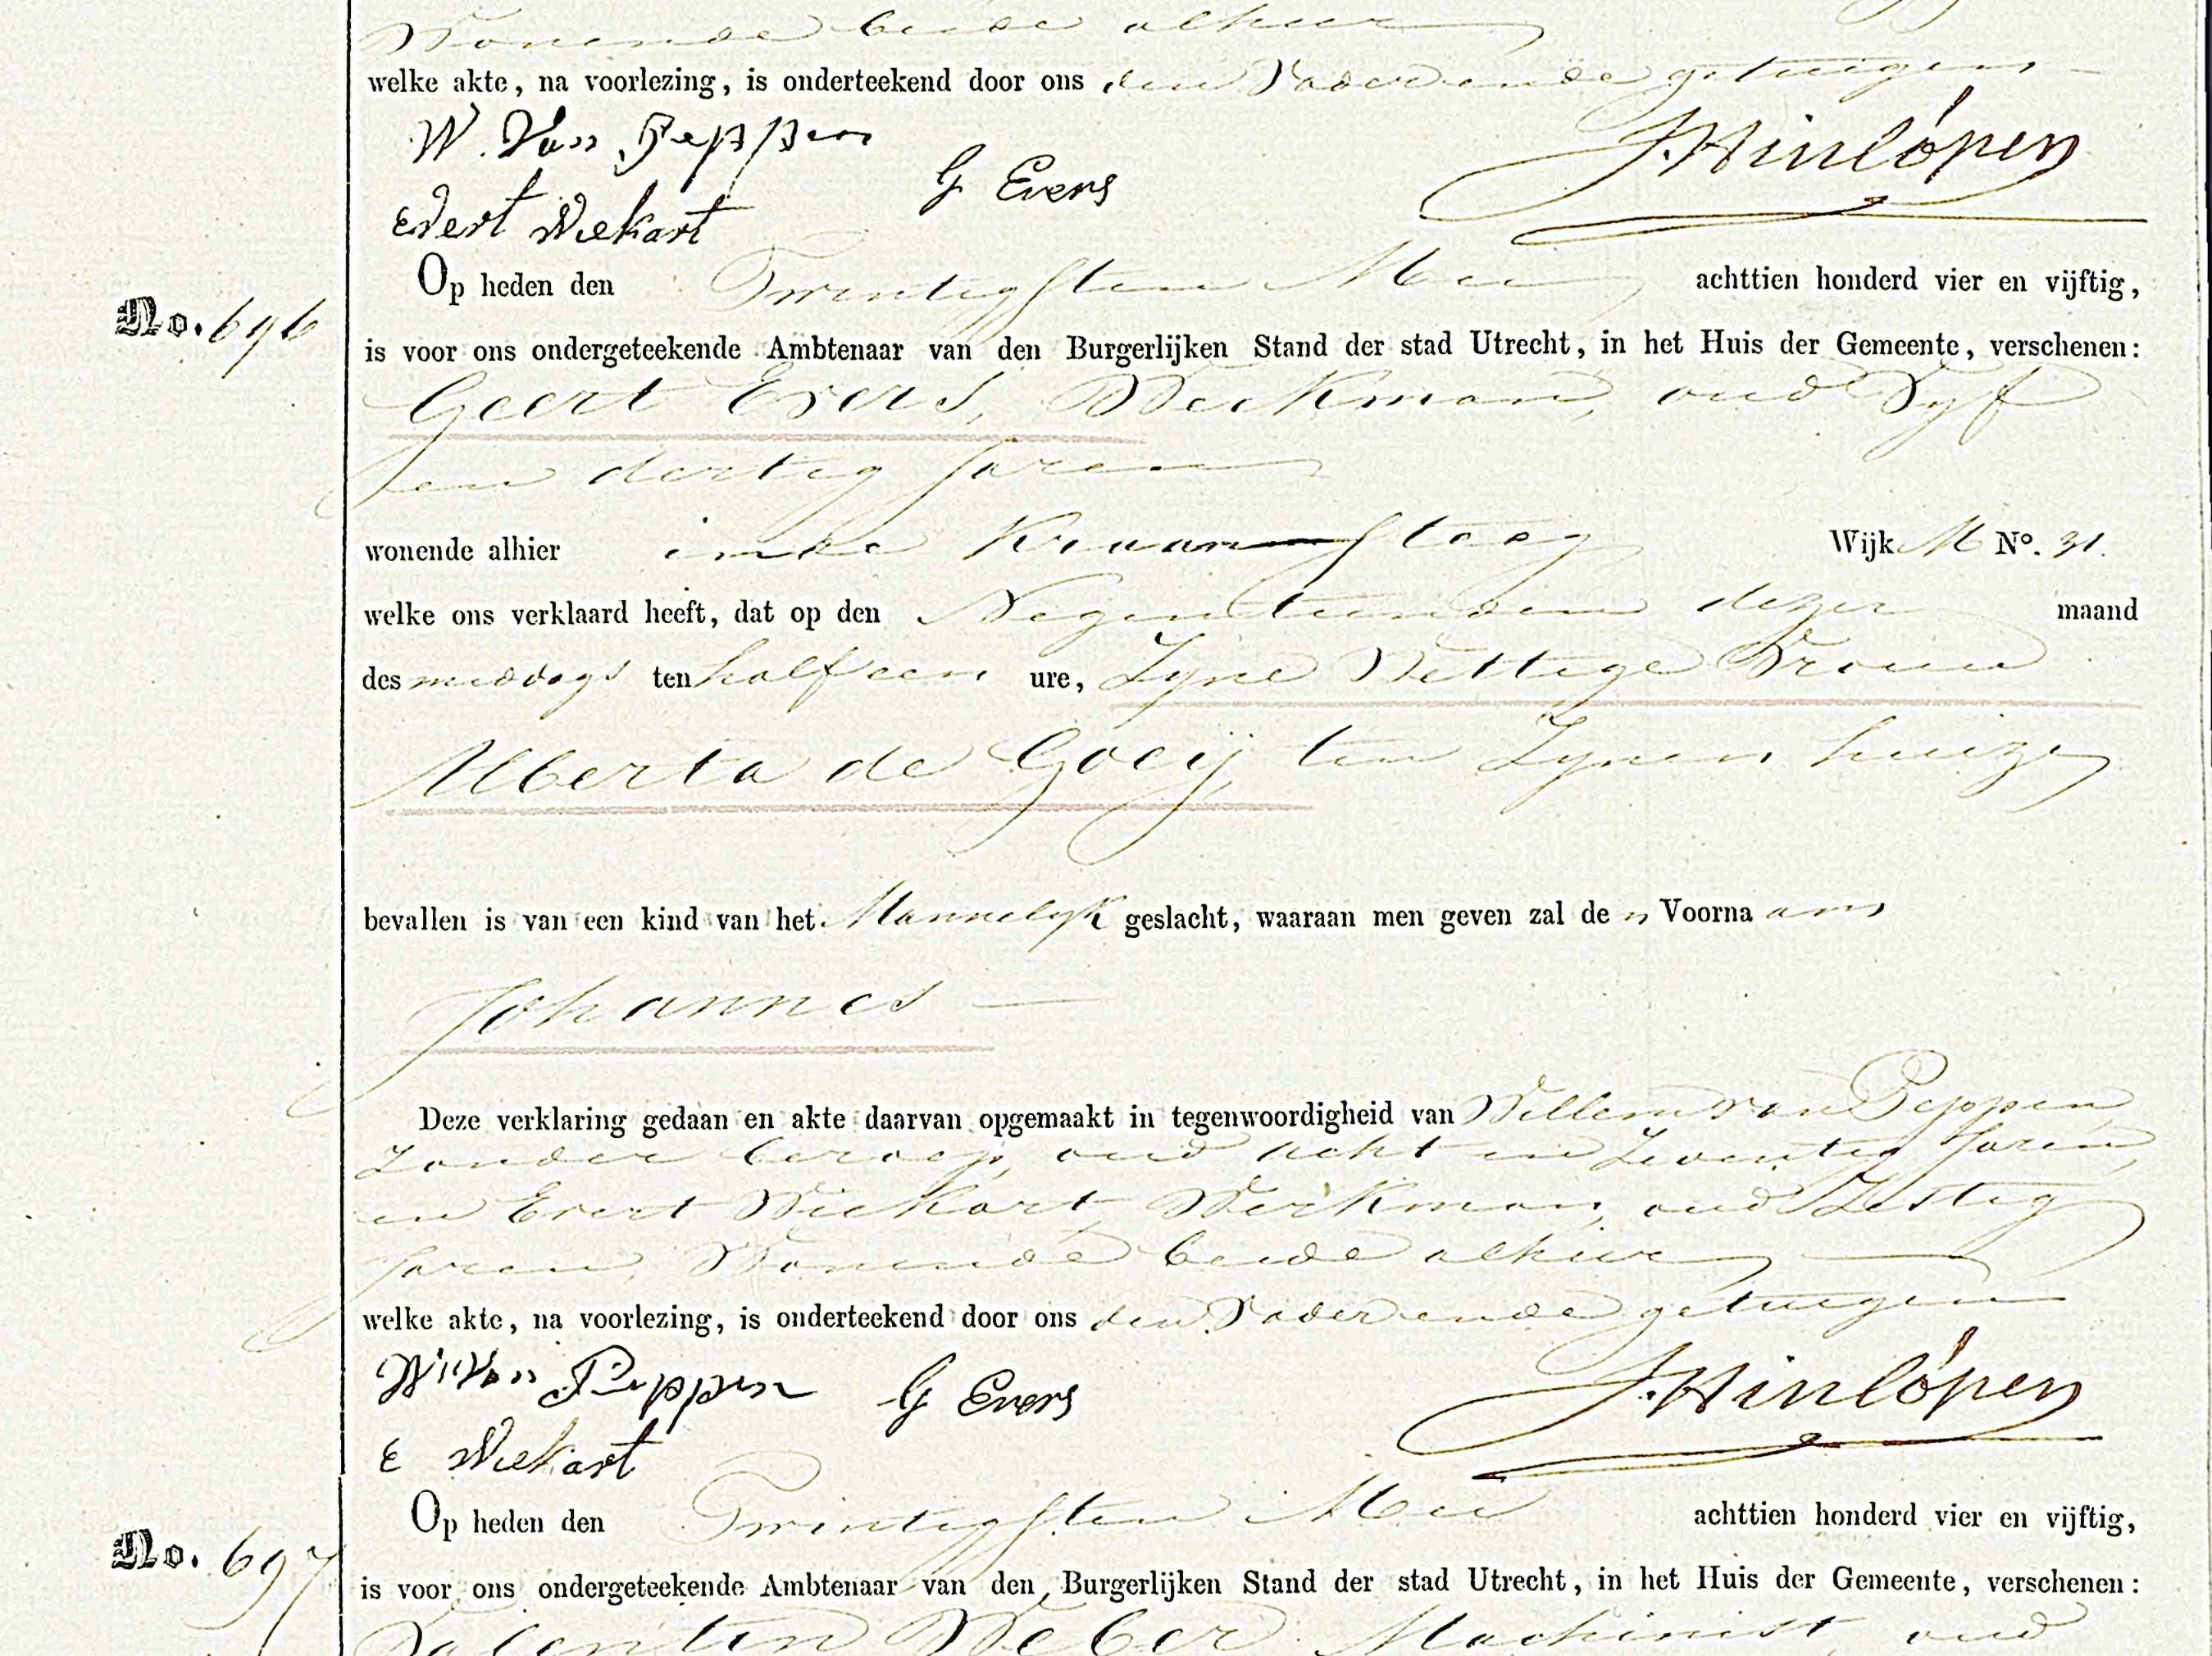 Wonende beide alhier
welke akte, na voorlezing, is onderteekend door ons den Vader en de getuigen
W. Van Peppen
G Evers
J. Hinlópen
Evert Niekart
No. 696
Op heden den Twintigsten Mei achttien honderd vier en vijftig,
is voor ons ondergeteekende Ambtenaar van den Burgerlijken Stand der stad Utrecht, in het Huis der Gemeente, verschenen:
Geert Evers, Werkman, oud Vyf
en dertig Jaren
wonende alhier in de Kraansteeg Wijk M No. 31.
welke ons verklaard heeft, dat op den Negentienden dezer maand
des middags ten half een ure, Zyne Wettige Vrouw
Alberta de Goeij ten Zynen huize
bevallen is van een kind van het Mannelyk geslacht, waaraan men geven zal de n Voorna am
Johannes
Deze verklaring gedaan en akte daarvan opgemaakt in tegenwoordigheid van Willem van Peppen
Zonder beroep, oud acht en Zeventig Jaren,
en Evert Niekart Werkman, oud Zestig
Jaren, Wonende beide alhier
welke akte, na voorlezing, is onderteekend door ons den Vader en de getuigen
W. Van Peppen G Evers J. Hinlópen
E Niekart
No. 697
Op heden den Twintigsten Mei achttien honderd vier en vijftig,
is voor ons ondergeteekende Ambtenaar van den Burgerlijken Stand der stad Utrecht, in het Huis der Gemeente, verschenen:
Valentin Weber Machinist, oud